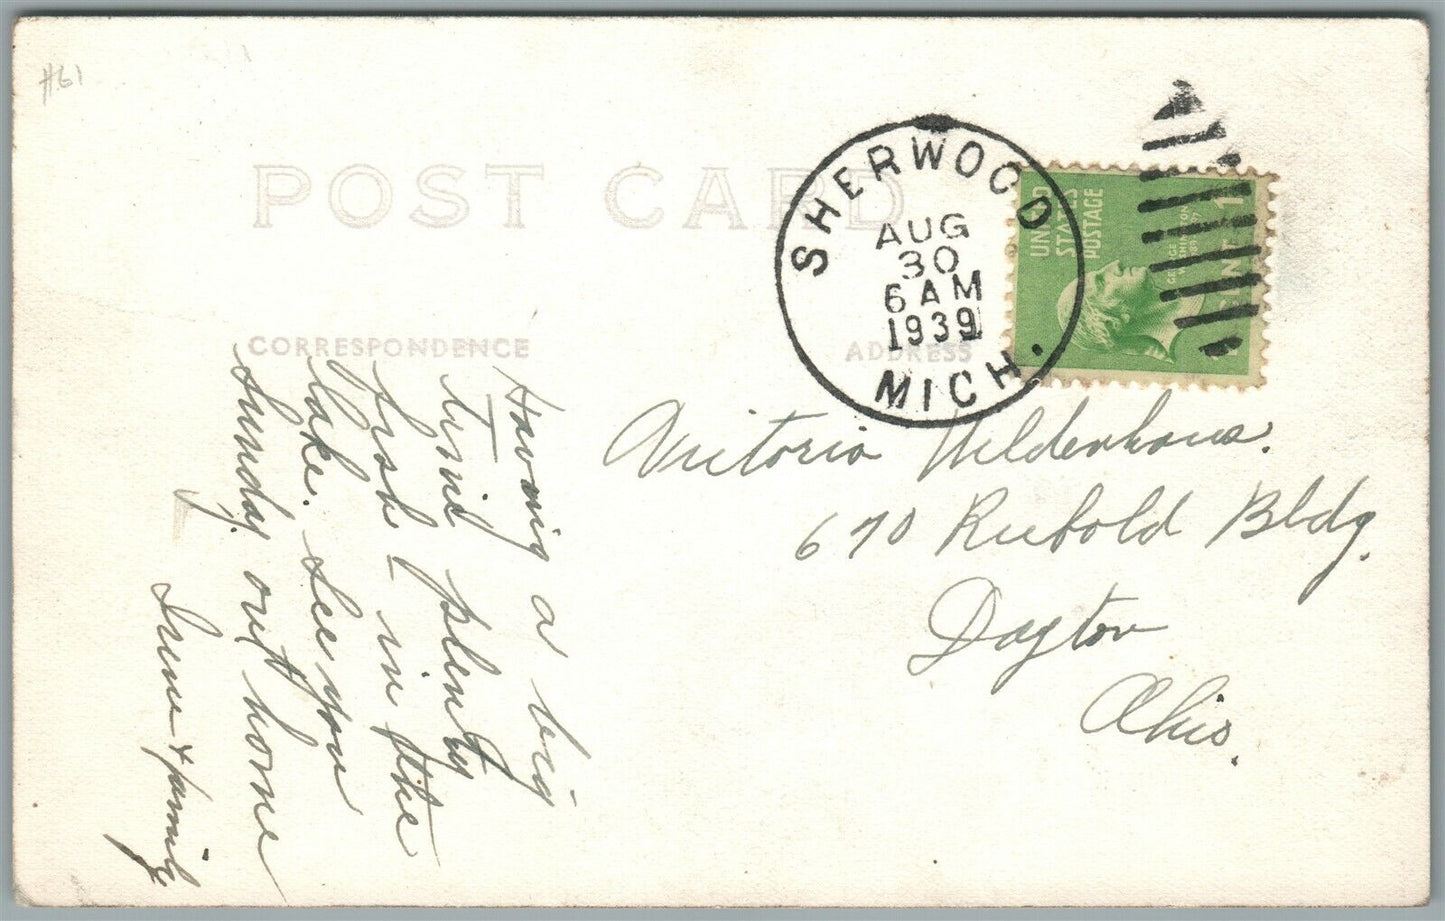 #61
POST CARD
SHERWOOD
AUG
30
6 AM
1939
MICH.
UNITED
STATES
POSTAGE
GEORGE
WASHINGTON
1 CENT
CORRESPONDENCE
ADDRESS
Having a big
time plenty
fish in the
lake. See you
Sunday, out home
Irene & family
Victoria Wildenhaus.
670 Reibold Bldg.
Dayton
Ohio.